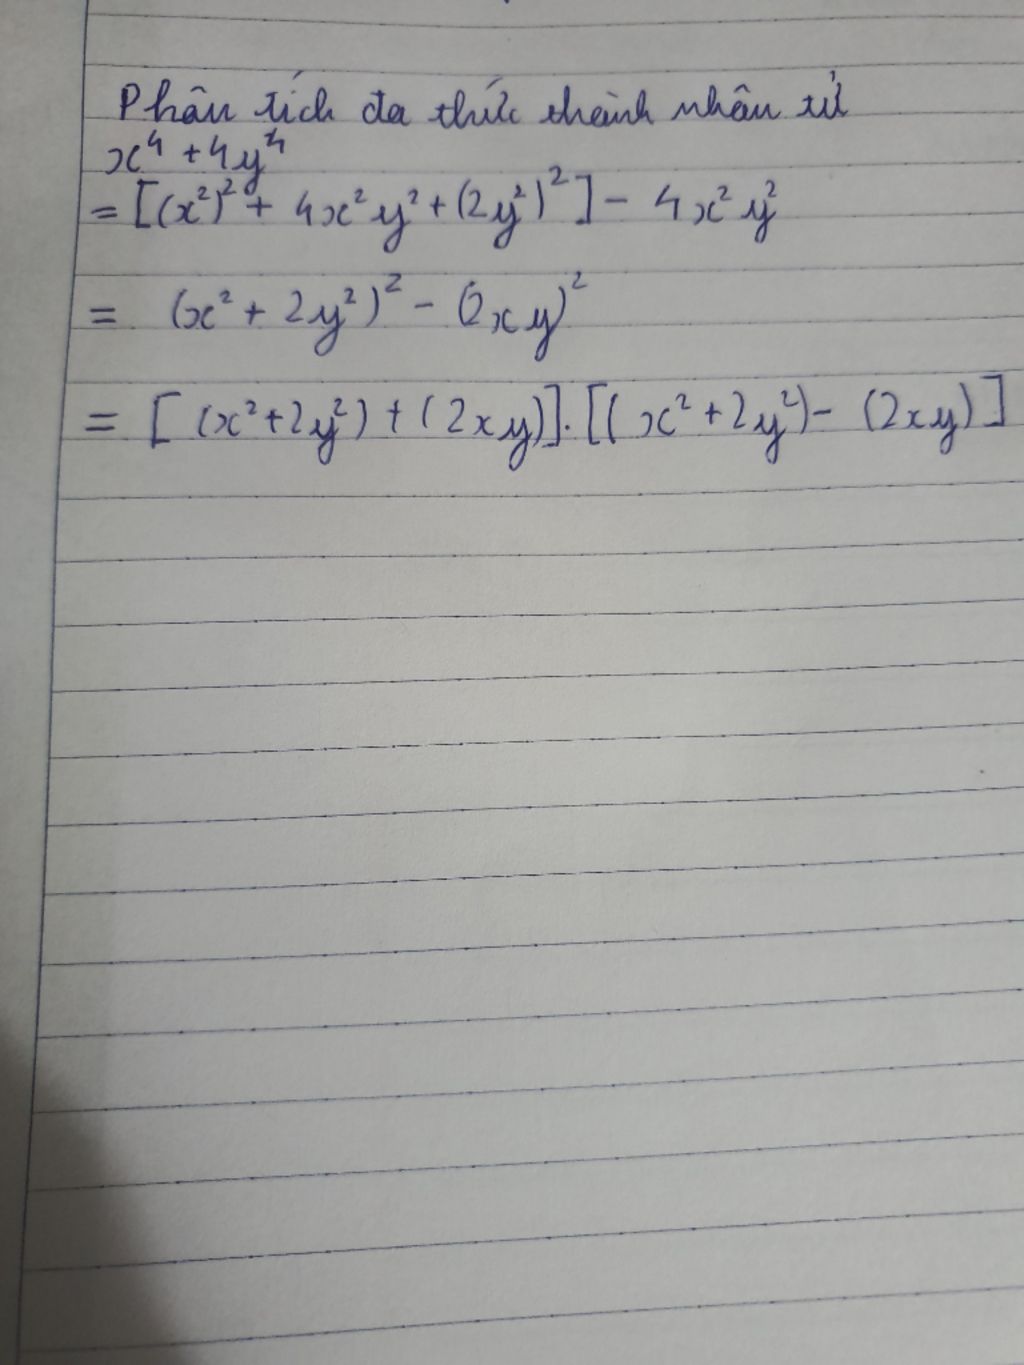 Phân tích đa thức thành nhân tử
x⁴ + 4y⁴
= [(x²)² + 4x²y² + (2y²)²] - 4x²y²
= (x² + 2y²)² - (2xy)²
= [(x² + 2y²) + (2xy)].[(x² + 2y²) - (2xy)]